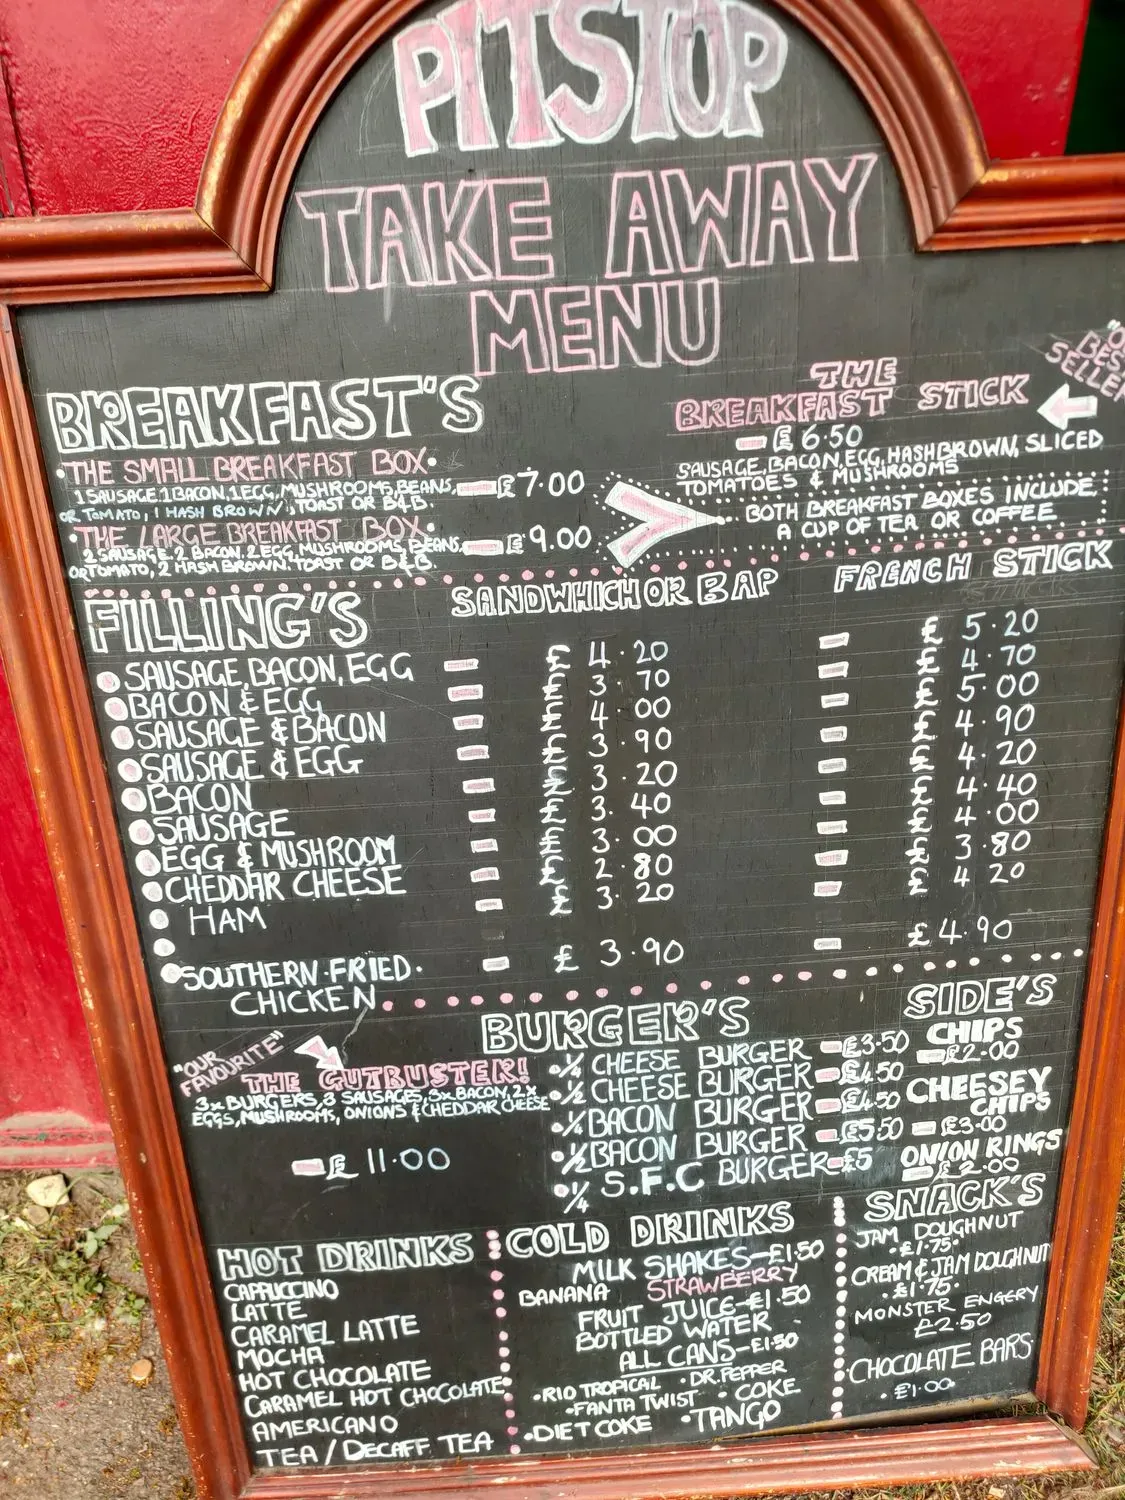 PITSTOP
TAKE AWAY
MENU
BREAKFAST'S
•THE SMALL BREAKFAST BOX•
1 SAUSAGE, 1 BACON, 1 EGG, MUSHROOMS, BEANS, £7.00
OR TOMATO, 1 HASH BROWN, TOAST OR B&B.
•THE LARGE BREAKFAST BOX•
2 SAUSAGE, 2 BACON, 2 EGG, MUSHROOMS, BEANS, £9.00
OR TOMATO, 2 HASH BROWN. TOAST OR B&B.
THE
BREAKFAST STICK
£6.50
SAUSAGE, BACON, EGG, HASHBROWN, SLICED
TOMATOES & MUSHROOMS
BOTH BREAKFAST BOXES INCLUDE
A CUP OF TEA OR COFFEE
FILLING'S SANDWHICH OR BAP FRENCH STICK
SAUSAGE, BACON, EGG £ 4.20 £ 5.20
BACON & EGG £ 3.70 £ 4.70
SAUSAGE & BACON £ 4.00 £ 5.00
SAUSAGE & EGG £ 3.90 £ 4.90
BACON £ 3.20 £ 4.20
SAUSAGE £ 3.40 £ 4.40
EGG & MUSHROOM £ 3.00 £ 4.00
CHEDDAR CHEESE £ 2.80 £ 3.80
HAM £ 3.20 £ 4.20
SOUTHERN•FRIED• £ 3.90 £ 4.90
CHICKEN
"OUR
FAVOURITE"
THE GUTBUSTER!
3x BURGERS, 3 SAUSAGES, 3x BACON, 2x
EGGS, MUSHROOMS, ONIONS & CHEDDAR CHEESE
£ 11.00
BURGER'S
1/4 CHEESE BURGER £3.50
1/2 CHEESE BURGER £4.50
1/4 BACON BURGER £4.50
1/2 BACON BURGER £5.50
1/4 S.F.C BURGER £5
SIDE'S
CHIPS
£2.00
CHEESEY
CHIPS
£3.00
ONION RINGS
£2.00
HOT DRINKS
CAPPUCCINO
LATTE
CARAMEL LATTE
MOCHA
HOT CHOCOLATE
CARAMEL HOT CHOCOLATE
AMERICANO
TEA / DECAFF TEA
COLD DRINKS
MILK SHAKES-£1.50
BANANA STRAWBERRY
FRUIT JUICE-£1.50
BOTTLED WATER
ALL CANS-£1.50
•RIO TROPICAL •DR.PEPPER
•FANTA TWIST •COKE
•DIET COKE •TANGO
SNACK'S
JAM DOUGHNUT
•£1.75•
CREAM & JAM DOUGHNUT
•£1.75•
MONSTER ENGERY
£2.50
•CHOCOLATE BARS•
•£1.00•